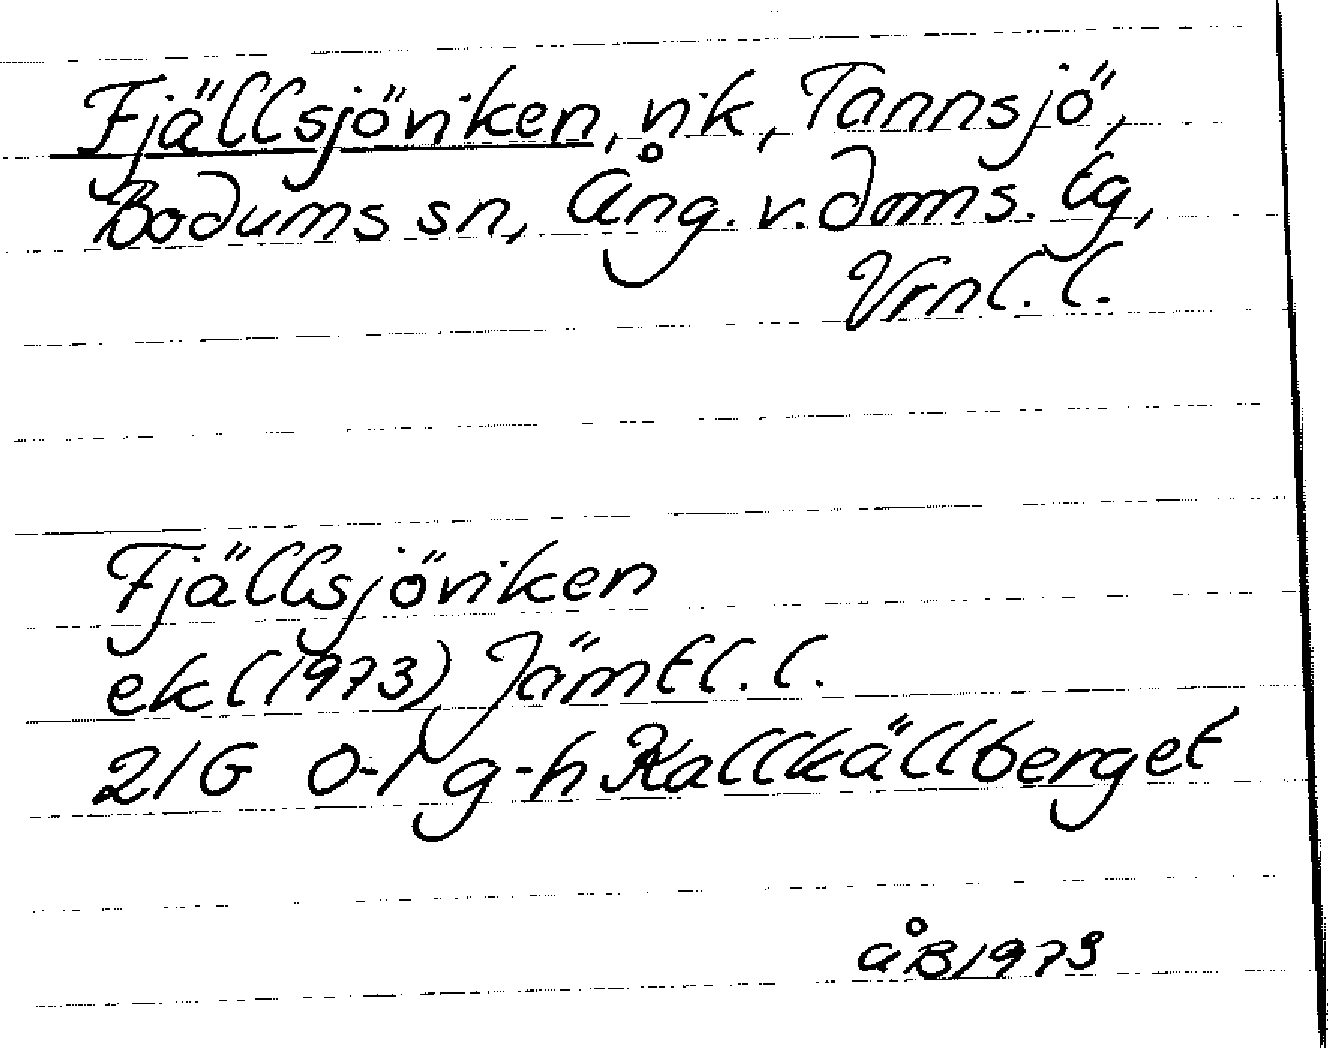 Fjällsjöviken, vik, Tannsjö,
Bodums sn, Ång. v. doms. tg,
Vrnl. l.
Fjällsjöviken
ek (1973) Jämtl. l.
21G 0-1 g-h Kallkällberget
ÅB 1973